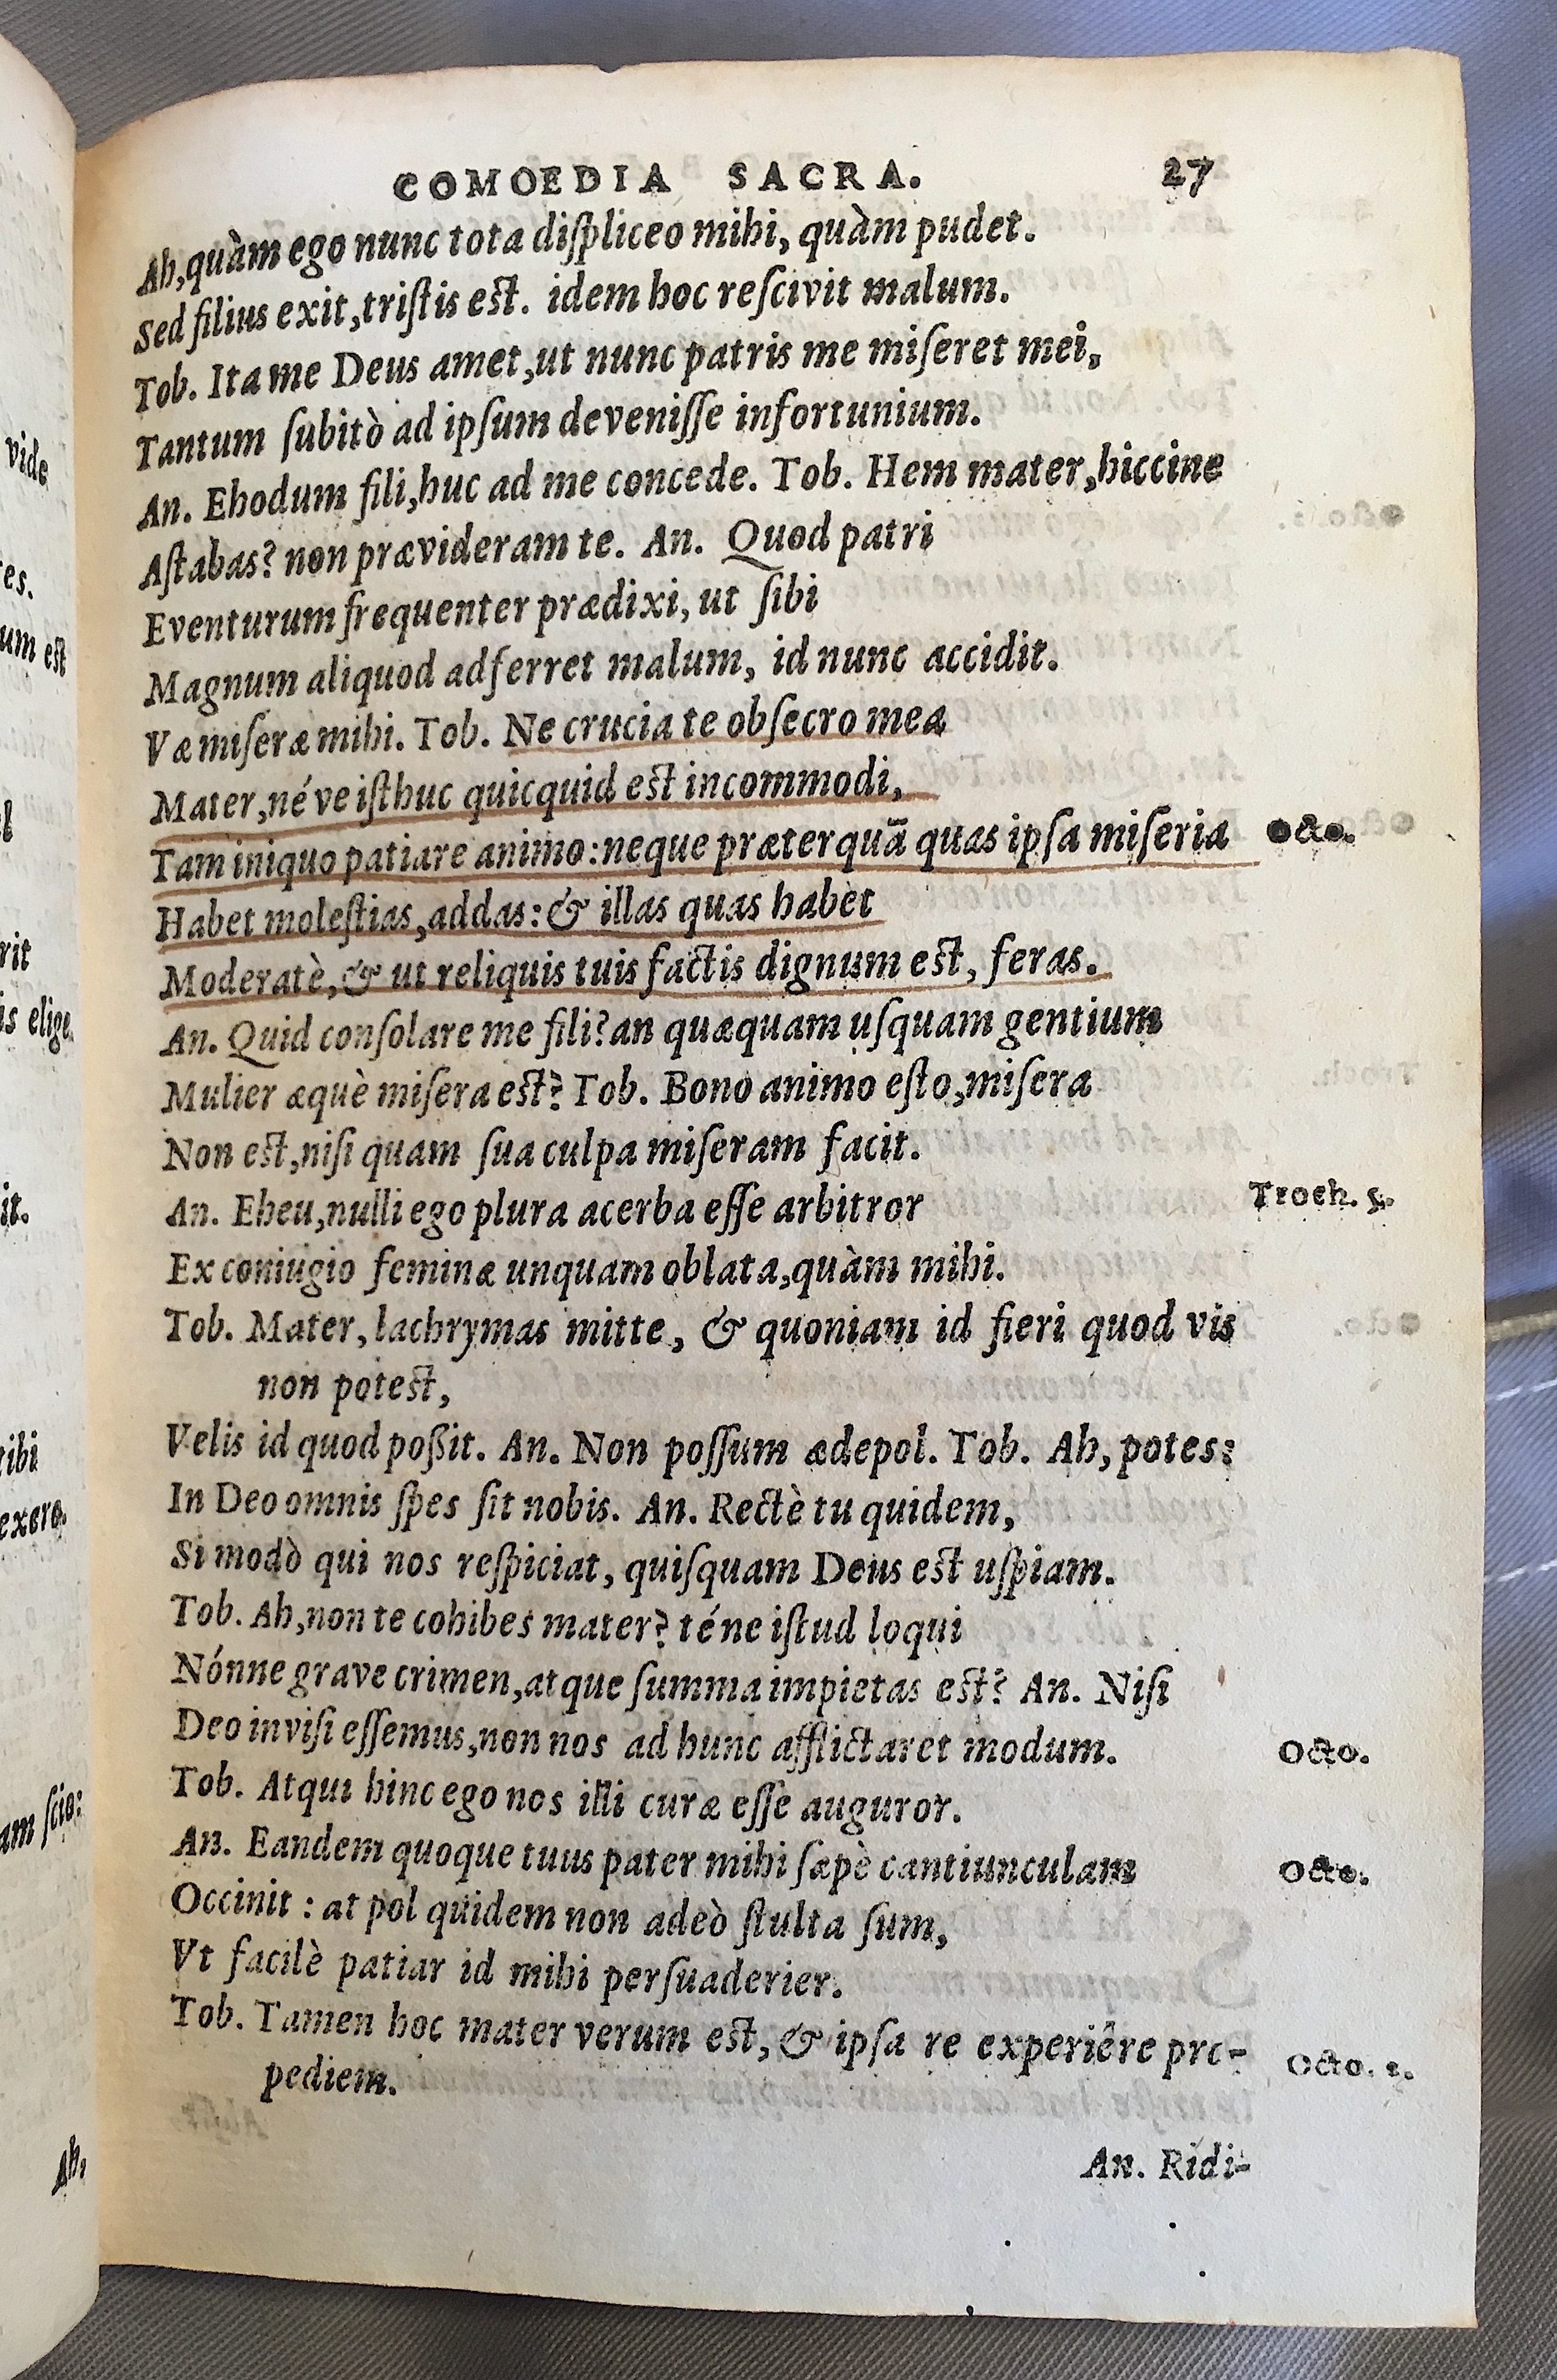 COMOEDIA SACRA. 27
Ah,quàm ego nunc tota diſpliceo mihi, quàm pudet.
Sed filius exit,triſtis eſt. idem hoc reſcivit malum.
Tob. Ita me Deus amet,ut nunc patris me miſeret mei,
Tantum ſubitò ad ipſum deveniſſe infortunium.
An. Ehodum fili,huc ad me concede. Tob. Hem mater,hiccine
Aſtabas? non prævideram te. An. Quod patri
Eventurum frequenter prædixi, ut ſibi
Magnum aliquod adferret malum, id nunc accidit.
Væ miſeræ mihi. Tob. Ne crucia te obſecro mea
Mater,né ve iſthuc quicquid eſt incommodi,
Tam iniquo patiare animo:neque præterquã quas ipſa miſeria Octo.
Habet moleſtias,addas:& illas quas habet
Moderatè,& ut reliquis tuis factis dignum eſt, feras.
An. Quid conſolare me fili?an quæquam uſquam gentium
Mulier æquè miſera eſt? Tob. Bono animo eſto,miſera
Non eſt,niſi quam ſua culpa miſeram facit.
An. Eheu,nulli ego plura acerba eſſe arbitror Troch. s.
Ex coniugio feminæ unquam oblata,quàm mihi.
Tob. Mater, lachrymas mitte, & quoniam id fieri quod vis
non poteſt,
Velis id quod poßit. An. Non poſſum ædepol. Tob. Ah, potes:
In Deo omnis ſpes ſit nobis. An. Rectè tu quidem,
Si modò qui nos reſpiciat, quiſquam Deus eſt uſpiam.
Tob. Ah,non te cohibes mater? téne iſtud loqui
Nónne grave crimen,atque ſumma impietas eſt? An. Niſi
Deo inviſi eſſemus,non nos ad hunc afflictaret modum. Octo.
Tob. Atqui hinc ego nos illi curæ eſſe auguror.
An. Eandem quoque tuus pater mihi ſæpè cantiunculam Octo.
Occinit : at pol quidem non adeò ſtulta ſum,
Vt facilè patiar id mihi perſuaderier.
Tob. Tamen hoc mater verum eſt, & ipſa re experiêre pro-
pediem. Octo. s.
An. Ridi-
vide
es.
um eſt
rit
is elige
it.
tibi
exero.
am ſcio:
Ah,